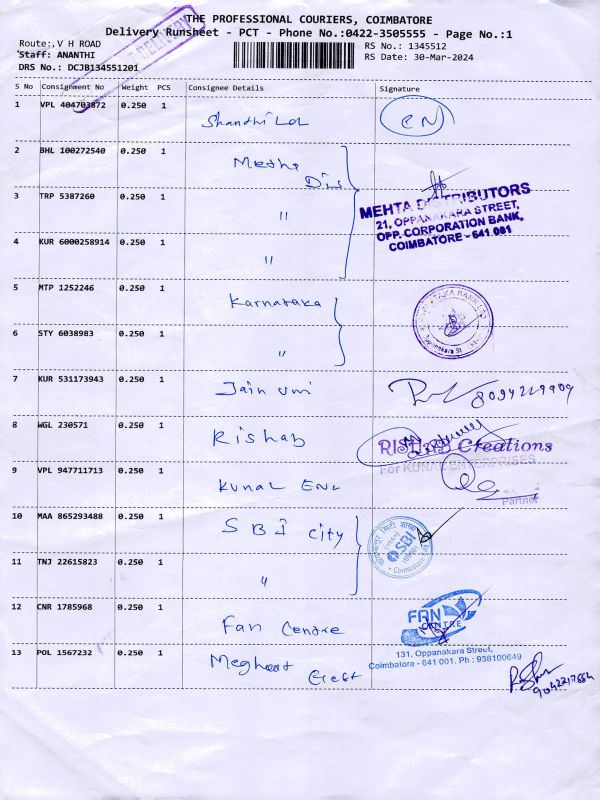 THE PROFESSIONAL COURIERS, COIMBATORE
Delivery Runsheet - PCT - Phone No.:0422-3505555 - Page No.:1
Route:,V H ROAD
Staff: ANANTHI
DRS No.: DCJB134551201
RS No.: 1345512
RS Date: 30-Mar-2024
DELIVERY
S No Consignment No Weight PCS Consignee Details Signature
1 VPL 404703872 0.250 1 Shanthi
2 BHL 100272540 0.250 1 Metha Dis
3 TRP 5387260 0.250 1 "
4 KUR 6000258914 0.250 1 "
MEHTA DISTRIBUTORS
21, OPPANAKARA STREET,
OPP. CORPORATION BANK,
COIMBATORE - 641 001
5 MTP 1252246 0.250 1 Karnataka
6 STY 6038983 0.250 1 "
7 KUR 531173943 0.250 1 Jain uni
8 WGL 230571 0.250 1 Rishab
RISHAB Creations
For KUNAL ENTERPRISES
9 VPL 947711713 0.250 1 Kunal Ent
Partner
10 MAA 865293488 0.250 1 SBI City
SBI
11 TNJ 22615823 0.250 1 "
12 CNR 1785968 0.250 1 Fan Centre
FAN CENTRE
131, Oppanakara Street,
Coimbatore - 641 001. Ph : 936100649
13 POL 1567232 0.250 1